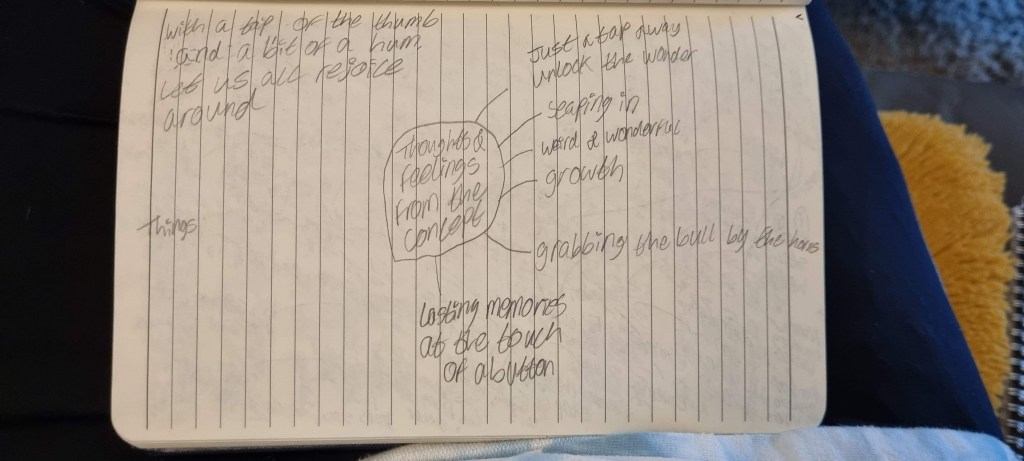 with a tip of the thumb
and a bit of a hum
let us all rejoice
around
Things
Thoughts &
feelings
from the
concept
Just a tap away
unlock the wonder
seaping in
weird & wonderful
growth
grabbing the bull by the horns
Lasting memories
at the touch
of a button